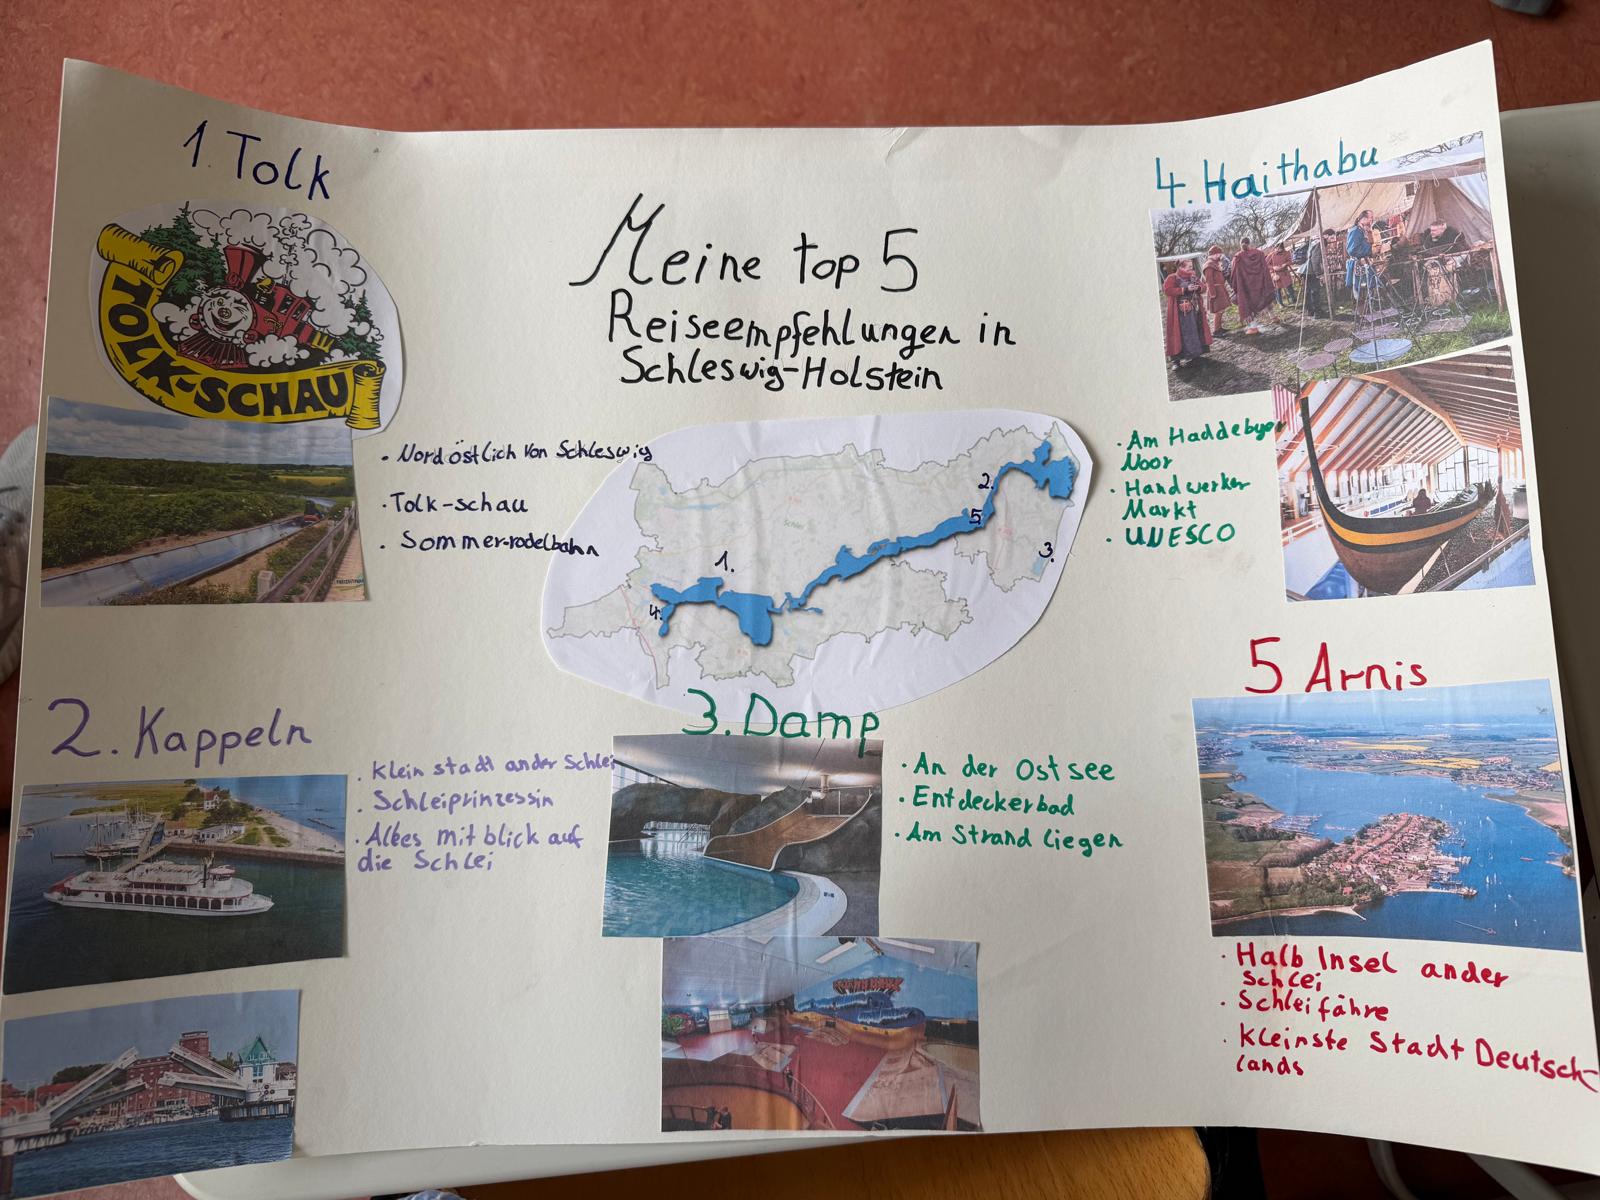 Meine top 5
Reiseempfehlungen in
Schleswig-Holstein
1. Tolk
TOLK-SCHAU
. Nordöstlich von Schleswig
. Tolk-schau
. Sommer-rodelbahn
2. Kappeln
. Klein stadt an der Schlei
. Schleiprinzessin
. Alles mit blick auf
die Schlei
3. Damp
. An der Ostsee
. Entdeckerbad
. Am Strand liegen
4. Haithabu
. Am Haddebyer
Noor
. Handwerker
Markt
. UNESCO
5 Arnis
. Halb Insel an der
Schlei
. Schleifähre
. Kleinste Stadt Deutsch-
lands
2.
5.
3.
1.
4.